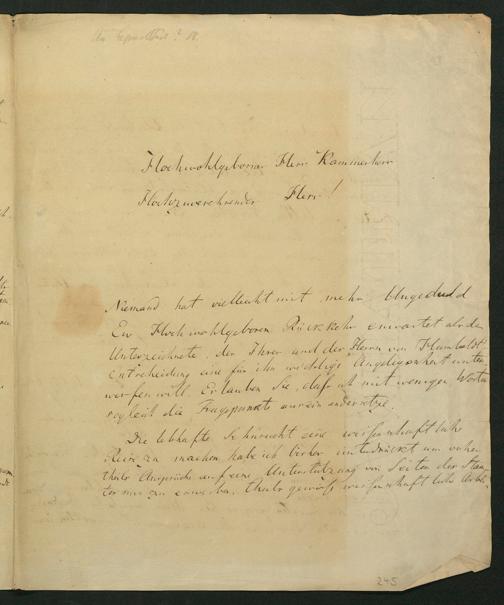 Hochwohlgeborner Herr Kammerherr
Hochzuverehrender Herr!
Niemand hat vielleicht mit mehr Ungeduld
Ew Hochwohlgeboren Rückkehr erwartet als der
Unterzeichnete, der Ihrer und der Herrn von Humboldt
Entscheidung eine für ihn wichtige Angelegenheit unter
werfen will. Erlauben Sie, daß ich mit wenigen Worten
sogleich die Fragpunkte auseinandersetze.
Die lebhafte Sehnsucht eine wissenschaftliche
Reise zu machen habe ich bisher unterdrückt um
theils Ansprüche auf eine Unterstützung von Seiten der
zu erwerben, theils gewisse wissenschaftliche
245